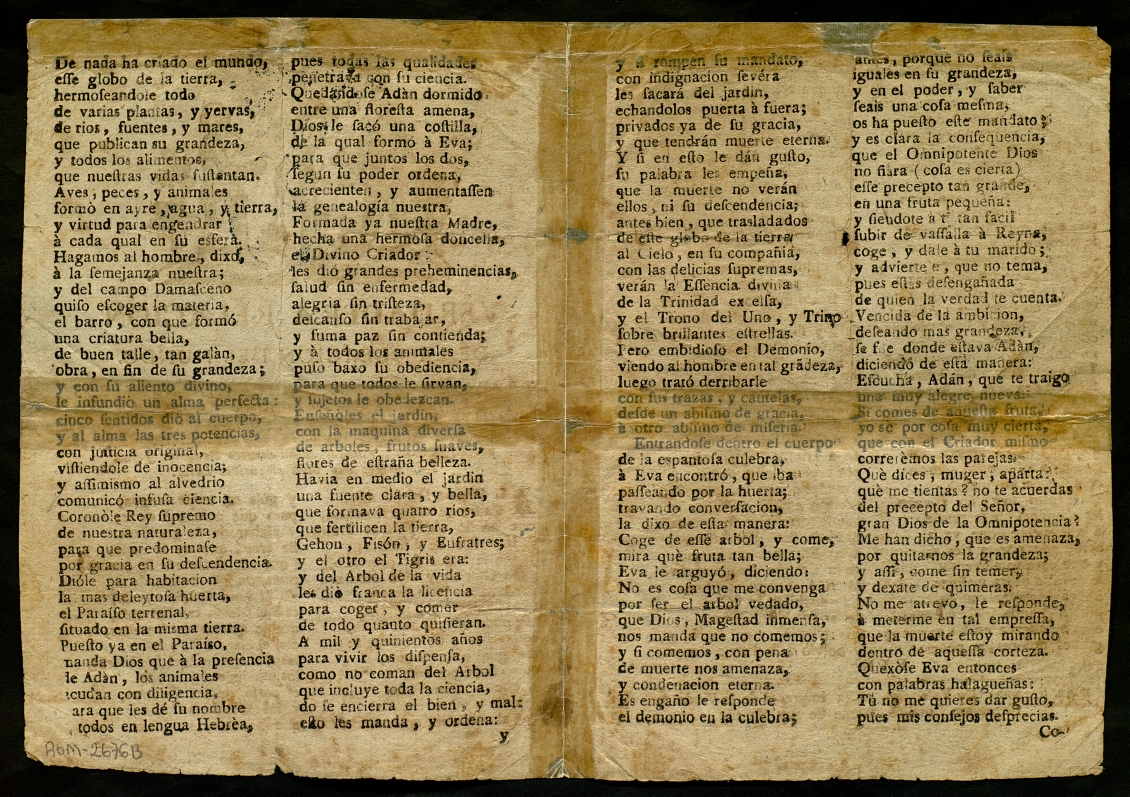 De nada ha criado el mundo,
eſſe globo de la tierra,
hermoſeandole todo
de varias plantas, y yervas,
de rios, fuentes, y mares,
que publican su grandeza,
y todos los alimentos,
que nueſtras vidas ſuſtentan.
Aves, peces, y animales
formò en ayre, agua, y tierra,
y virtud para engendrar
à cada qual en ſu esfera.
Hagamos al hombre, dixo,
à la ſemejanza nueſtra;
y del campo Damaſceno
quiſo eſcoger la materia,
el barro, con que formó
una criatura bella,
de buen talle, tan galàn,
obra, en fin de ſu grandeza;
y con ſu aliento divino,
le infundiò un alma perfecta:
cinco ſentidos diò al cuerpo,
y al alma las tres potencias,
con juſticia original,
viſtiendole de inocencia;
y aſſimismo al alvedrio
comunicó infuſa ciencia.
Coronòle Rey ſupremo
de nueſtra naturaleza,
para que predominaſe
por gracia en ſu deſcendencia.
Dióle para habitacion
la mas deleytoſa huerta,
el Paraíſſo terrenal,
ſituado en la miſma tierra.
Pueſto ya en el Paraíſo,
manda Dios que à la preſencia
de Adàn, los animales
acudan con diligencia,
para que les dé ſu nombre
todos en lengua Hebrèa,
pues todas las qualidades
penetrava con ſu ciencia.
Quedandoſe Adàn dormido
entre una floreſta amena,
Dios le ſacó una coſtilla,
de la qual formó à Eva;
para que juntos los dos,
ſegun ſu poder ordena,
acrecienten, y aumentaſſen
la genealogía nueſtra,
Formada ya nueſtra Madre,
hecha una hermoſa doncella,
el Divino Criador
les dió grandes preheminencias,
ſalud ſin enfermedad,
alegria ſin triſteza,
deſcanſo ſin trabajar,
y ſuma paz ſin contienda;
y à todos los animales
puſo baxo ſu obediencia,
para que todos le ſirvan,
y ſujetos le obedezcan.
Enſeñòles el jardin,
con la maquina diverſa
de arboles, frutos ſuaves,
flores de eſtraña belleza.
Havia en medio el jardin
una fuente clara, y bella,
que formava quatro rios,
que fertilicen la tierra,
Gehon, Fisón, y Eufratres;
y el otro el Tigris era:
y del Arbol de la vida
les diò franca la licencia
para coger, y comer
de todo quanto quiſieran.
A mil y quinientos años
para vivir los diſpenſa,
como no coman del Arbol
que incluye toda la ciencia,
do ſe encierra el bien, y mal:
eſto les manda, y ordena:
y
y ſi rompen ſu mandato,
con indignacion ſevéra
les ſacará del jardin,
echandolos puerta à fuera;
privados ya de ſu gracia,
y que tendrán muerte eterna.
Y ſi en eſto le dán guſto,
ſu palabra les empeña,
que la muerte no verán
ellos, ni ſu deſcendencia;
antes bien, que trasladados
de eſte globo de la tierra
al Cielo, en ſu compañia,
con las delicias ſupremas,
verán la Eſſencia divina
de la Trinidad excelſa,
y el Trono del Uno, y Trino
ſobre brillantes eſtrellas.
Pero embidioſo el Demonio,
viendo al hombre en tal grãdeza,
luego trató derribarle
con ſus trazas, y cautelas,
deſde un abiſmo de gracia,
à otro abiſmo de miſeria.
Entrandoſe dentro el cuerpo
de la eſpantoſa culebra,
à Eva encontró, que iba
paſſeando por la huerta;
travando converſacion,
la dixo de eſta manera:
Coge de eſſe arbol, y come,
mira què fruta tan bella;
Eva le arguyó, diciendo:
No es coſa que me convenga
por ſer el arbol vedado,
que Dios, Mageſtad inmenſa,
nos manda que no comemos;
y ſi comemos, con pena
de muerte nos amenaza,
y condenacion eterna.
Es engaño le reſponde
el demonio en la culebra;
antes, porque no ſeais
iguales en ſu grandeza,
y en el poder, y ſaber
ſeais una coſa meſma,
os ha pueſto eſte mandato;
y es clara la conſequencia,
que el Omnipotente Dios
no fiára (coſa es cierta)
eſſe precepto tan grande,
en una fruta pequeña:
y ſiẽdote à tí tan facil
ſubir de vaſſalla à Reyna,
coge, y dale à tu marido;
y advierte, que no tema,
pues eſtás deſengañada
de quien la verdad te cuenta.
Vencida de la ambicion,
deſeando mas grandeza,
ſe fue donde eſtava Adàn,
diciendo de eſta mañera:
Eſcucha, Adán, que te traigo
una muy alegre nueva:
Si comes de aqueſta fruta,
yo sé por coſa muy cierta,
que con el Criador miſmo
correrèmos las parejas.
Què dices, muger, aparta?
què me tientas? no te acuerdas
del precepto del Señor,
gran Dios de la Omnipotencia?
Me han dicho, que es amenaza,
por quitarnos la grandeza;
y aſſi, come ſin temer,
y dexate de quimeras.
No me atrevo, le reſponde,
à meterme en tal empreſſa,
que la muerte eſtoy mirando
dentro de aqueſſa corteza.
Quexòſe Eva entonces
con palabras halagueñas:
Tú no me quieres dar guſto,
pues mis conſejos deſprecias.
Co-
ROM-2676B